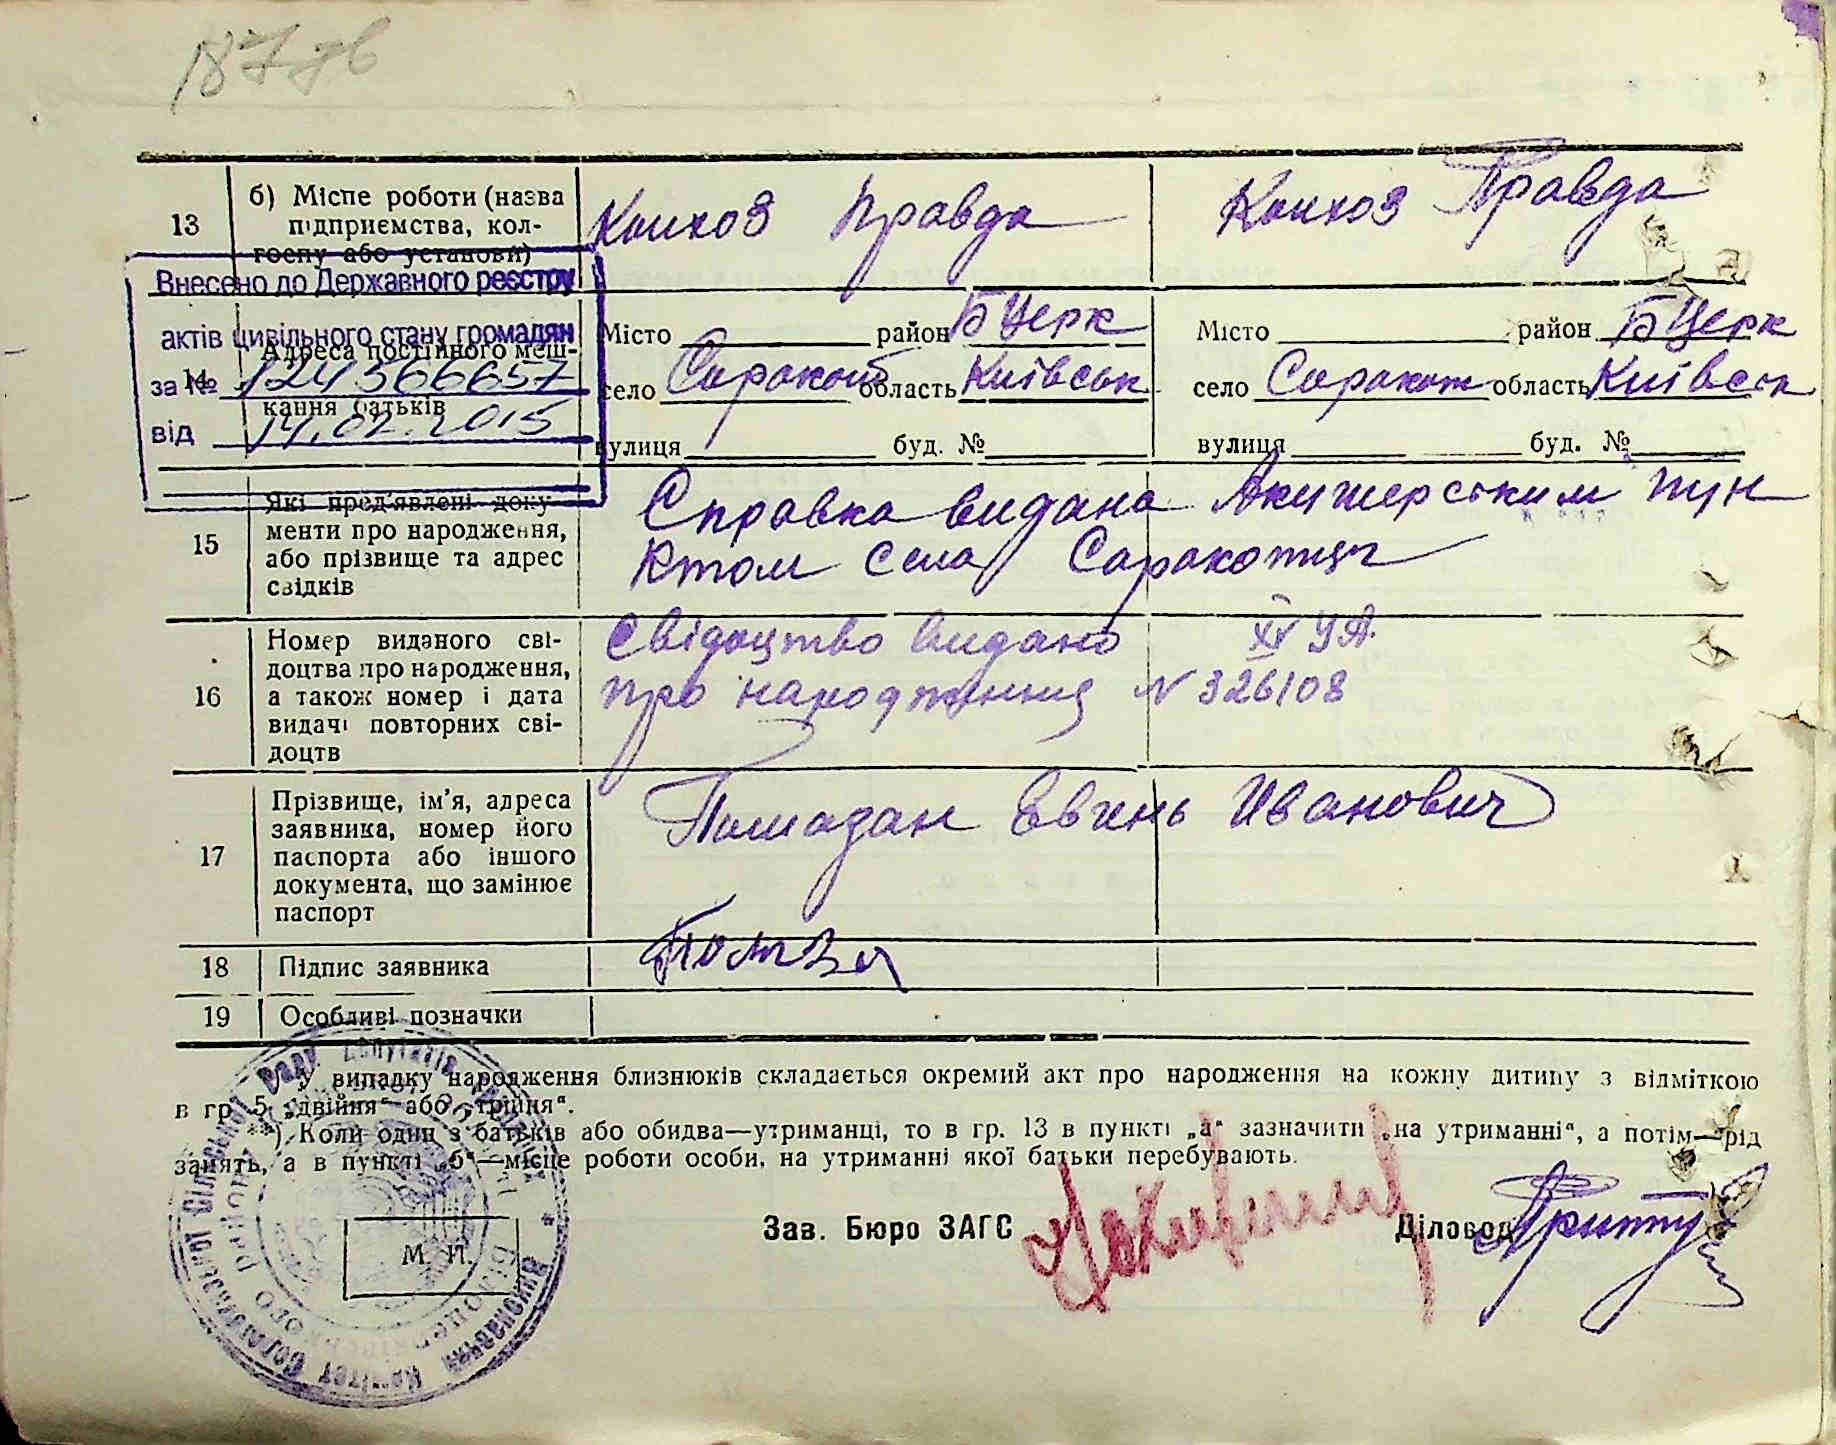 13
б) Місце роботи (назва
підприємства, кол-
госпу або установи)
Колхоз Правда
Колхоз Правда
Внесено до Державного реєстру
актів цивільного стану громадян
за №
від 14.02.2015
14
Адреса постійного меш-
кання батьків
Місто район Б Церк
село область Київськ
вулиця буд. №
Місто район Б Церк
село область Київськ
вулиця буд. №
15
Які пред'явлені доку-
менти про народження,
або прізвище та адрес
свідків
Справка видана Акушерським пун
ктом села
16
Номер виданого сві-
доцтва про народження,
а також номер і дата
видачі повторних сві-
доцтв
Свідоцтво видано XV УА
про народження № 326108
17
Прізвище, ім'я, адреса
заявника, номер його
паспорта або іншого
документа, що замінює
паспорт
Евгень Иванович
18
Підпис заявника
19
Особливі позначки
У випадку народження близнюків складається окремий акт про народження на кожну дитину з відміткою
в гр. 5 „двійня“ або „трійня“.
**) Коли один з батьків або обидва—утриманці, то в гр. 13 в пункті „а“ зазначити „на утриманні“, а потім—рід
занять, а в пункті „б“—місце роботи особи, на утриманні якої батьки перебувають.
Зав. Бюро ЗАГС
Діловод
М. П.